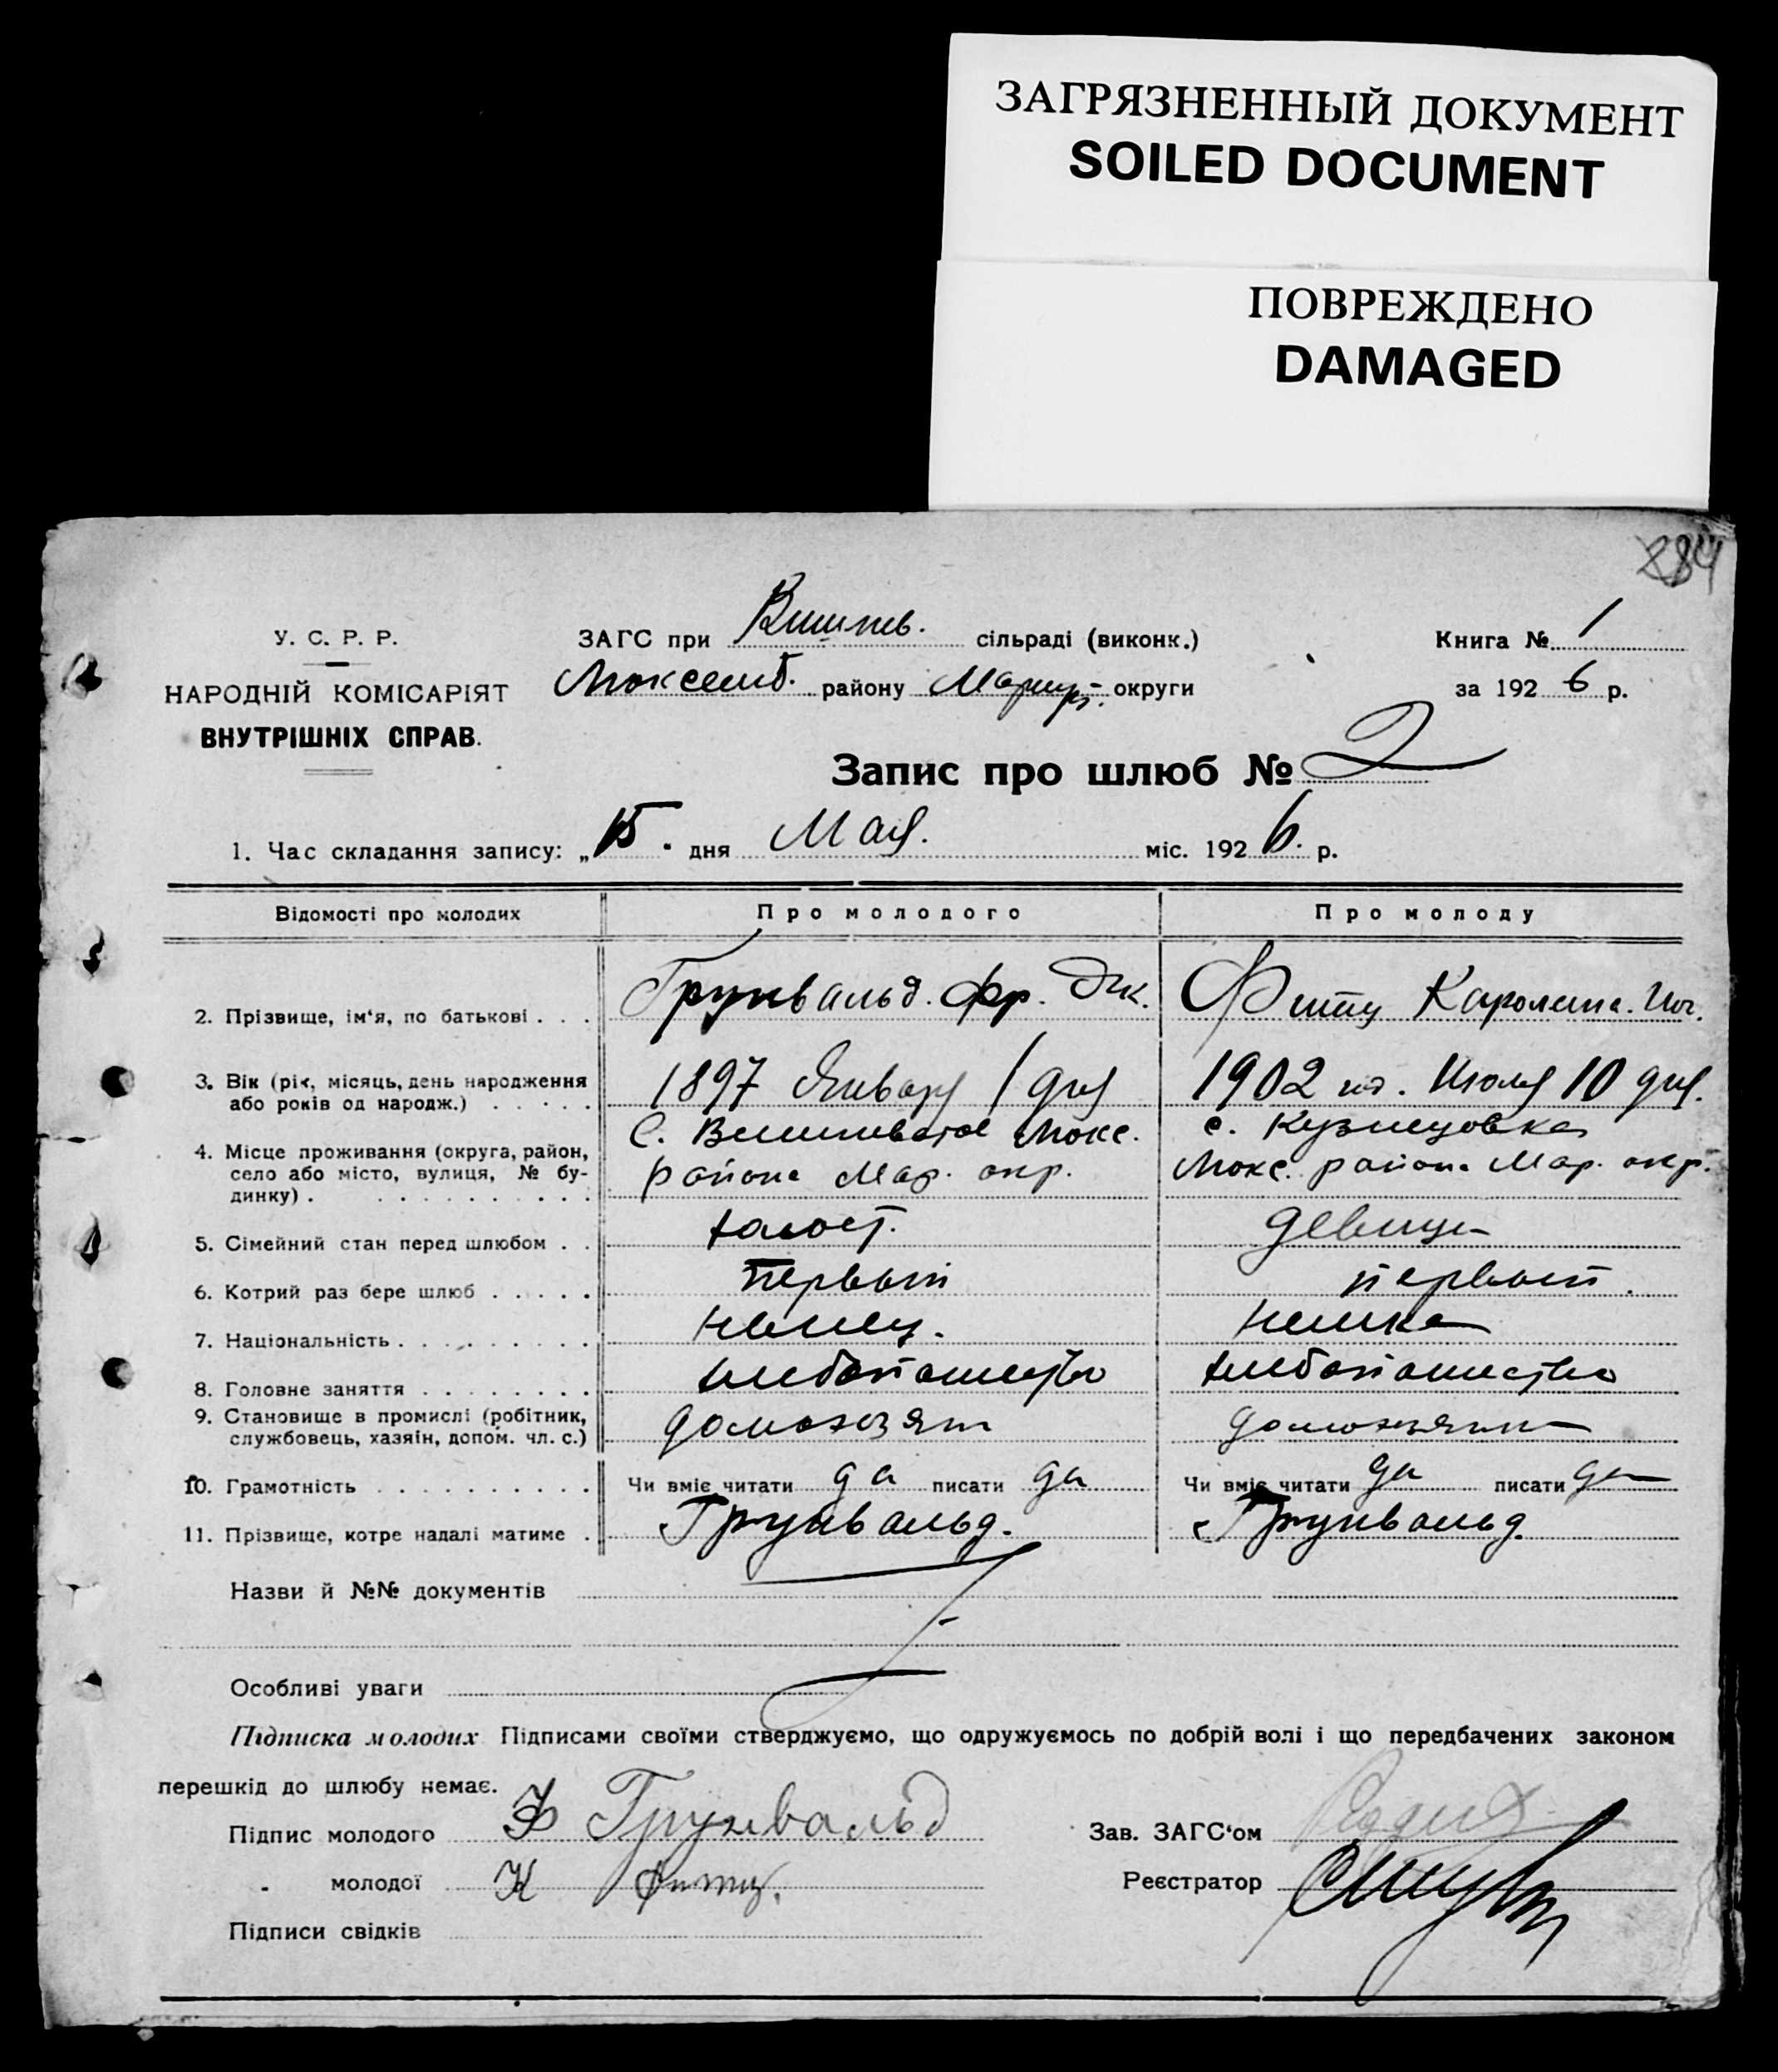 ЗАГРЯЗНЕННЫЙ ДОКУМЕНТ
SOILED DOCUMENT
ПОВРЕЖДЕНО
DAMAGED
284
У. С. Р. Р.
НАРОДНІЙ КОМІСАРІЯТ
ВНУТРІШНІХ СПРАВ.
ЗАГС при Вишнев. сільраді (виконк.)
Люксемб. району Мариуп. округи
Книга № 1
за 192 6 р.
Запис про шлюб № 2
1. Час складання запису: „15" дня Мая. міс. 192 6. р.
Відомості про молодих Про молодого Про молоду
2. Прізвище, ім'я, по батькові . . . Грунвальд. Фр. Фитц Каролина.
3. Вік (рік, місяць, день народження або років од народж.) . . . . . 1897 Января 1 дня 1902 Июля 10 дня.
4. Місце проживання (округа, район, село або місто, вулиця, № будинку) . С. Вишневатое Люкс. района Мар. окр. с. Кузнецовка Люкс. района Мар. окр.
5. Сімейний стан перед шлюбом . . холост. девица
6. Котрий раз бере шлюб . . . . . первый первый
7. Національність . . . . . . . . . немец. немка
8. Головне заняття . . . . . . . . хлебопашество хлебопашество
9. Становище в промислі (робітник, службовець, хазяїн, допом. чл. с.) домохозяин
10. Грамотність . . . . . . . . . . Чи вміє читати да писати да Чи вміє читати да писати да
11. Прізвище, котре надалі матиме . Грунвальд. Грунвальд.
Назви й №№ документів
Особливі уваги
Підписка молодих Підписами своїми стверджуємо, що одружуємось по добрій волі і що передбачених законом
перешкід до шлюбу немає.
Підпис молодого Ф Грунвальд Зав. ЗАГС'ом
" молодої К Фитц. Реєстратор
Підписи свідків